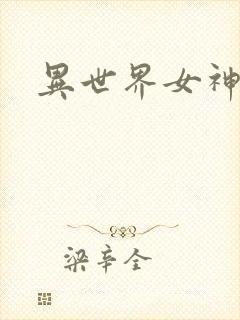 異世界女神
梁辛全